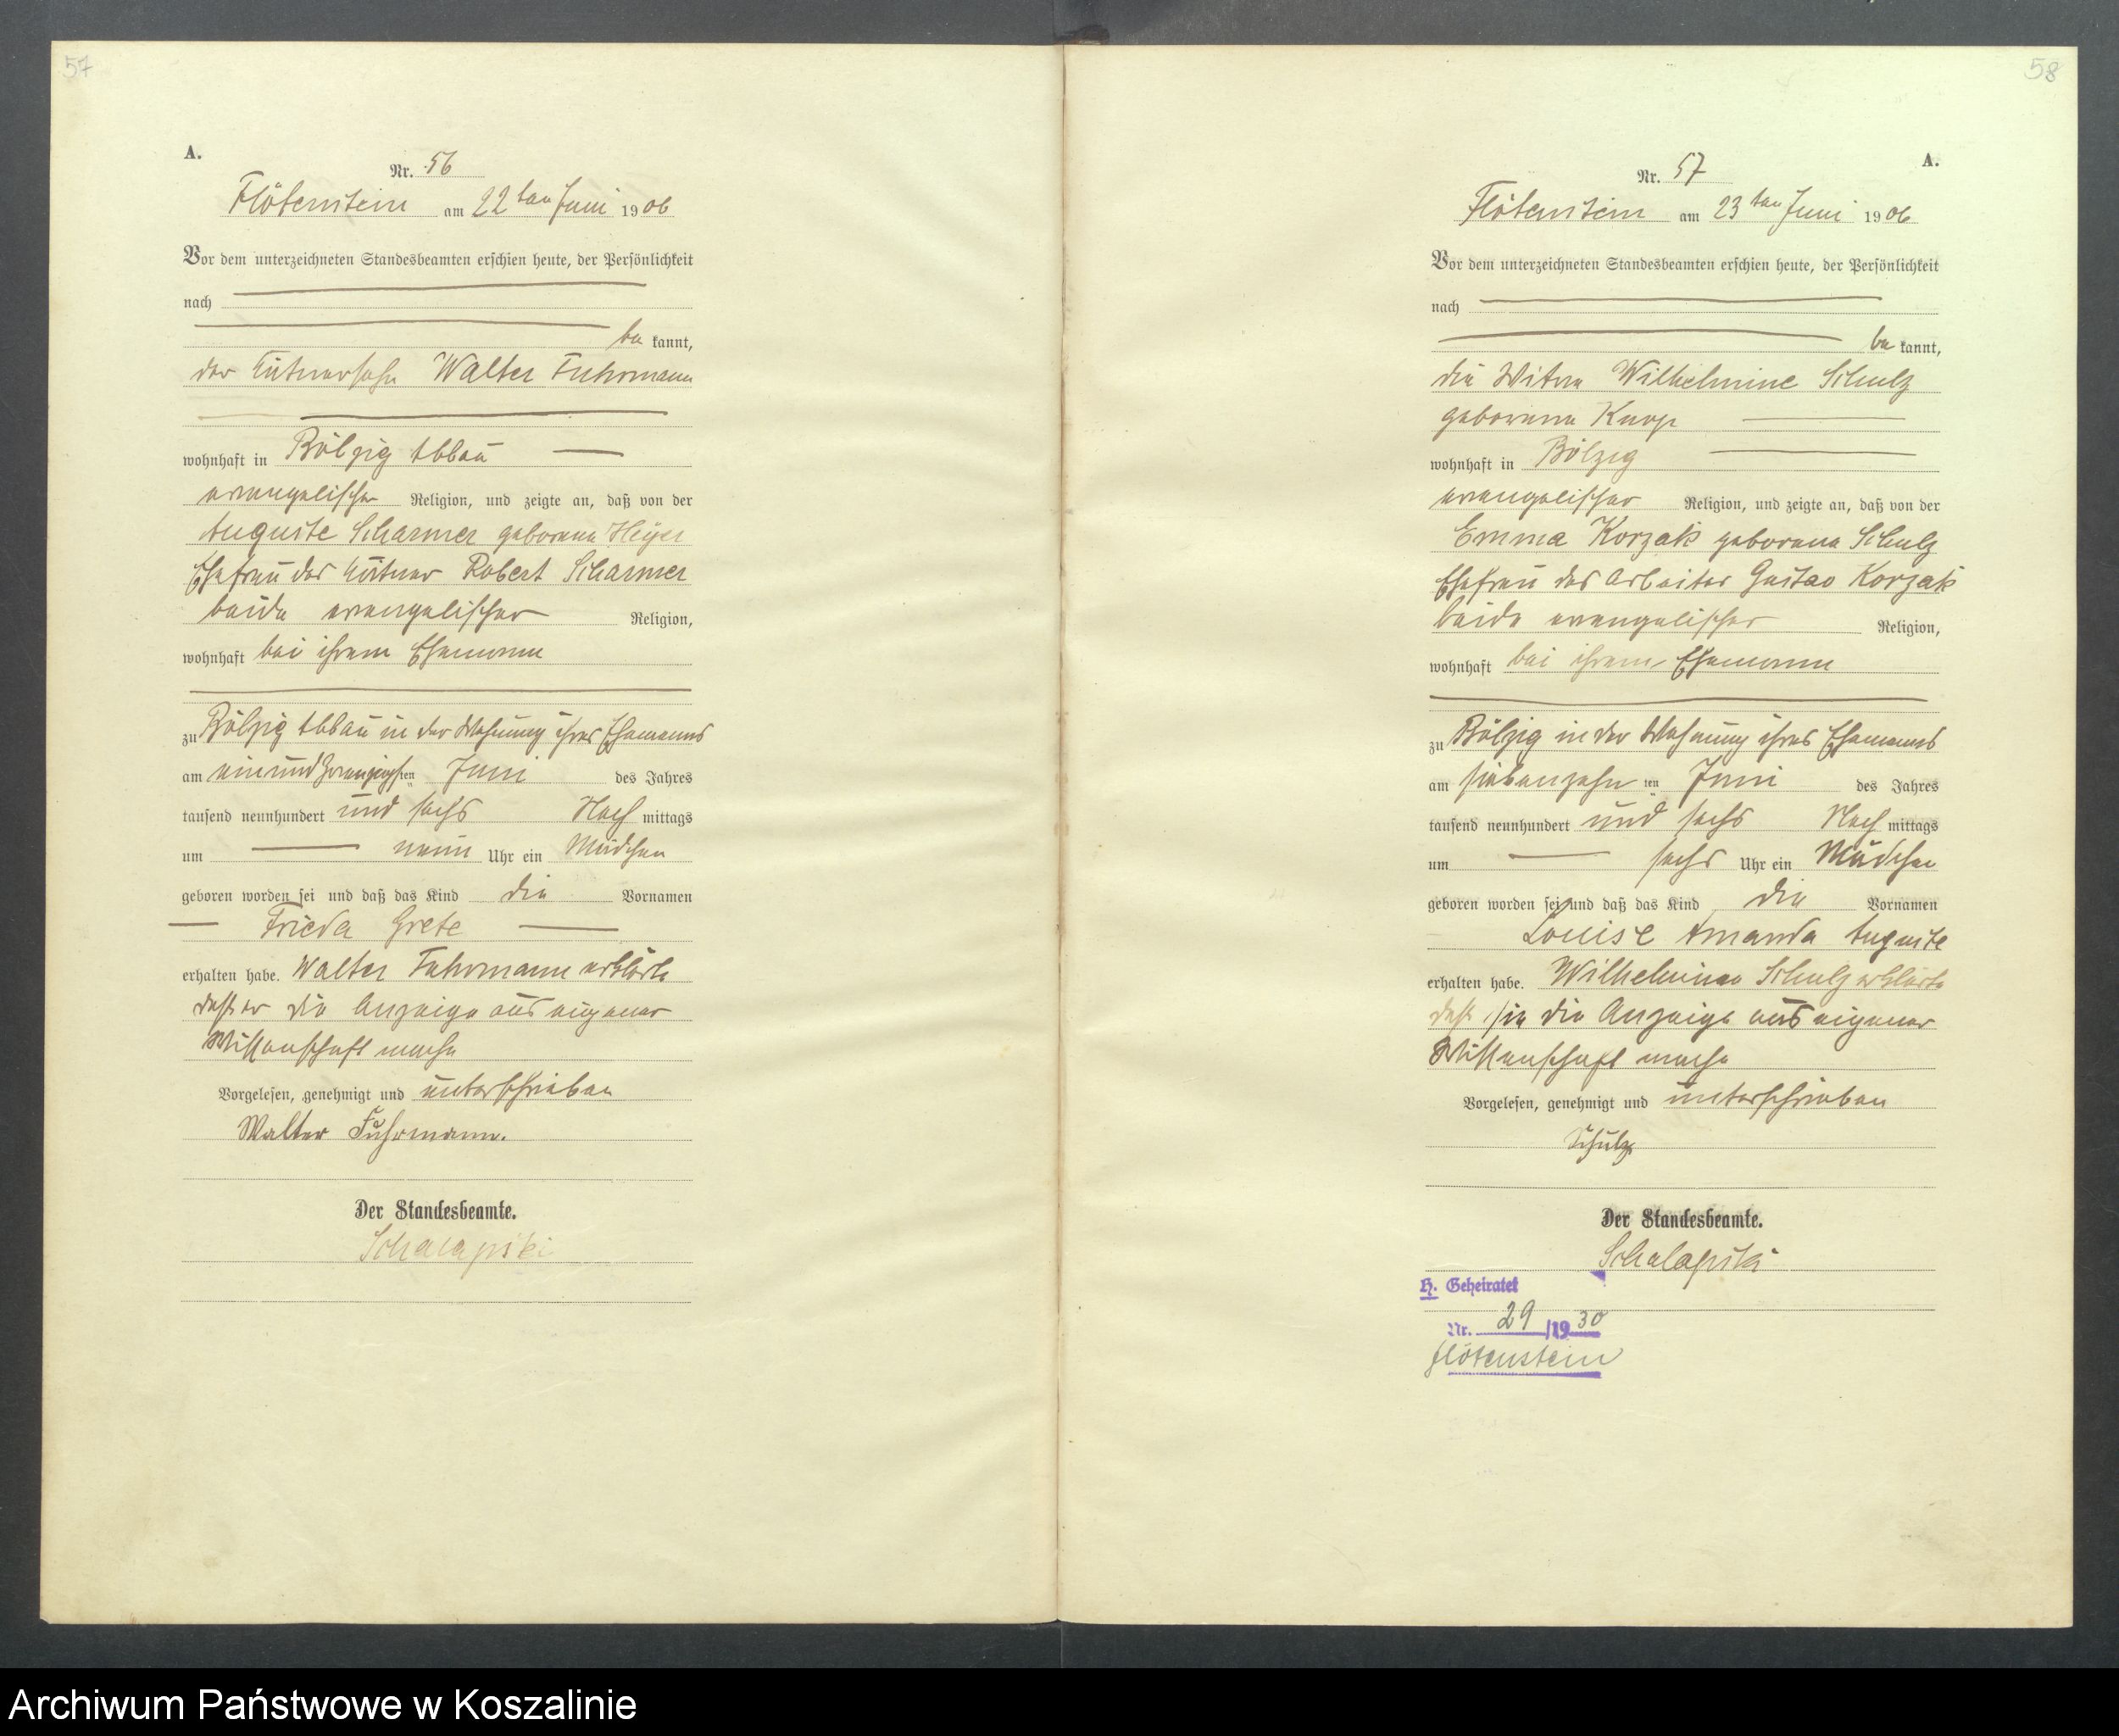 57
A.
Nr. 56
Flötenstein am 22ten Juni 1906
Vor dem unterzeichneten Standesbeamten erschien heute, der Persönlichkeit
nach
be kannt,
der Walter Fuhrmann
wohnhaft in Bölzig Abbau
evangelischer Religion, und zeigte an, daß von der
Auguste Scharmer geborene Heyer
Ehefrau des Robert Scharmer
beide evangelischer Religion,
wohnhaft bei ihrem Ehemann
zu Bölzig Abbau in der Wohnung ihres Ehemanns
am einundzwanzigsten Juni des Jahres
tausend neunhundert und sechs Nach mittags
um neun Uhr ein Mädchen
geboren worden sei und daß das Kind die Vornamen
Frieda Grete
erhalten habe. Walter Fuhrmann erklärte
daß er die Anzeige aus eigener
Wissenschaft mache
Vorgelesen, genehmigt und unterschrieben
Walter Fuhrmann.
Der Standesbeamte.
Schalapski
58
A.
Nr. 57
Flötenstein am 23ten Juni 1906
Vor dem unterzeichneten Standesbeamten erschien heute, der Persönlichkeit
nach
be kannt,
die Witwe Wilhelmine Schulz
geborene Knop
wohnhaft in Bölzig
evangelischer Religion, und zeigte an, daß von der
Emma Korzak geborene Schulz
Ehefrau des Arbeiter Gustav Korzak
beide evangelischer Religion,
wohnhaft bei ihrem Ehemann
zu Bölzig in der Wohnung ihres Ehemanns
am siebenzehnten Juni des Jahres
tausend neunhundert und sechs Nach mittags
um sechs Uhr ein Mädchen
geboren worden sei und daß das Kind die Vornamen
Louise Amanda Auguste
erhalten habe. Wilhelmine Schulz erklärte
daß sie die Anzeige aus eigener
Wissenschaft mache
Vorgelesen, genehmigt und unterschrieben
Schulz
Der Standesbeamte.
Schalapski
H. Geheiratet
Nr. 29/1930
Flötenstein
Archiwum Państwowe w Koszalinie